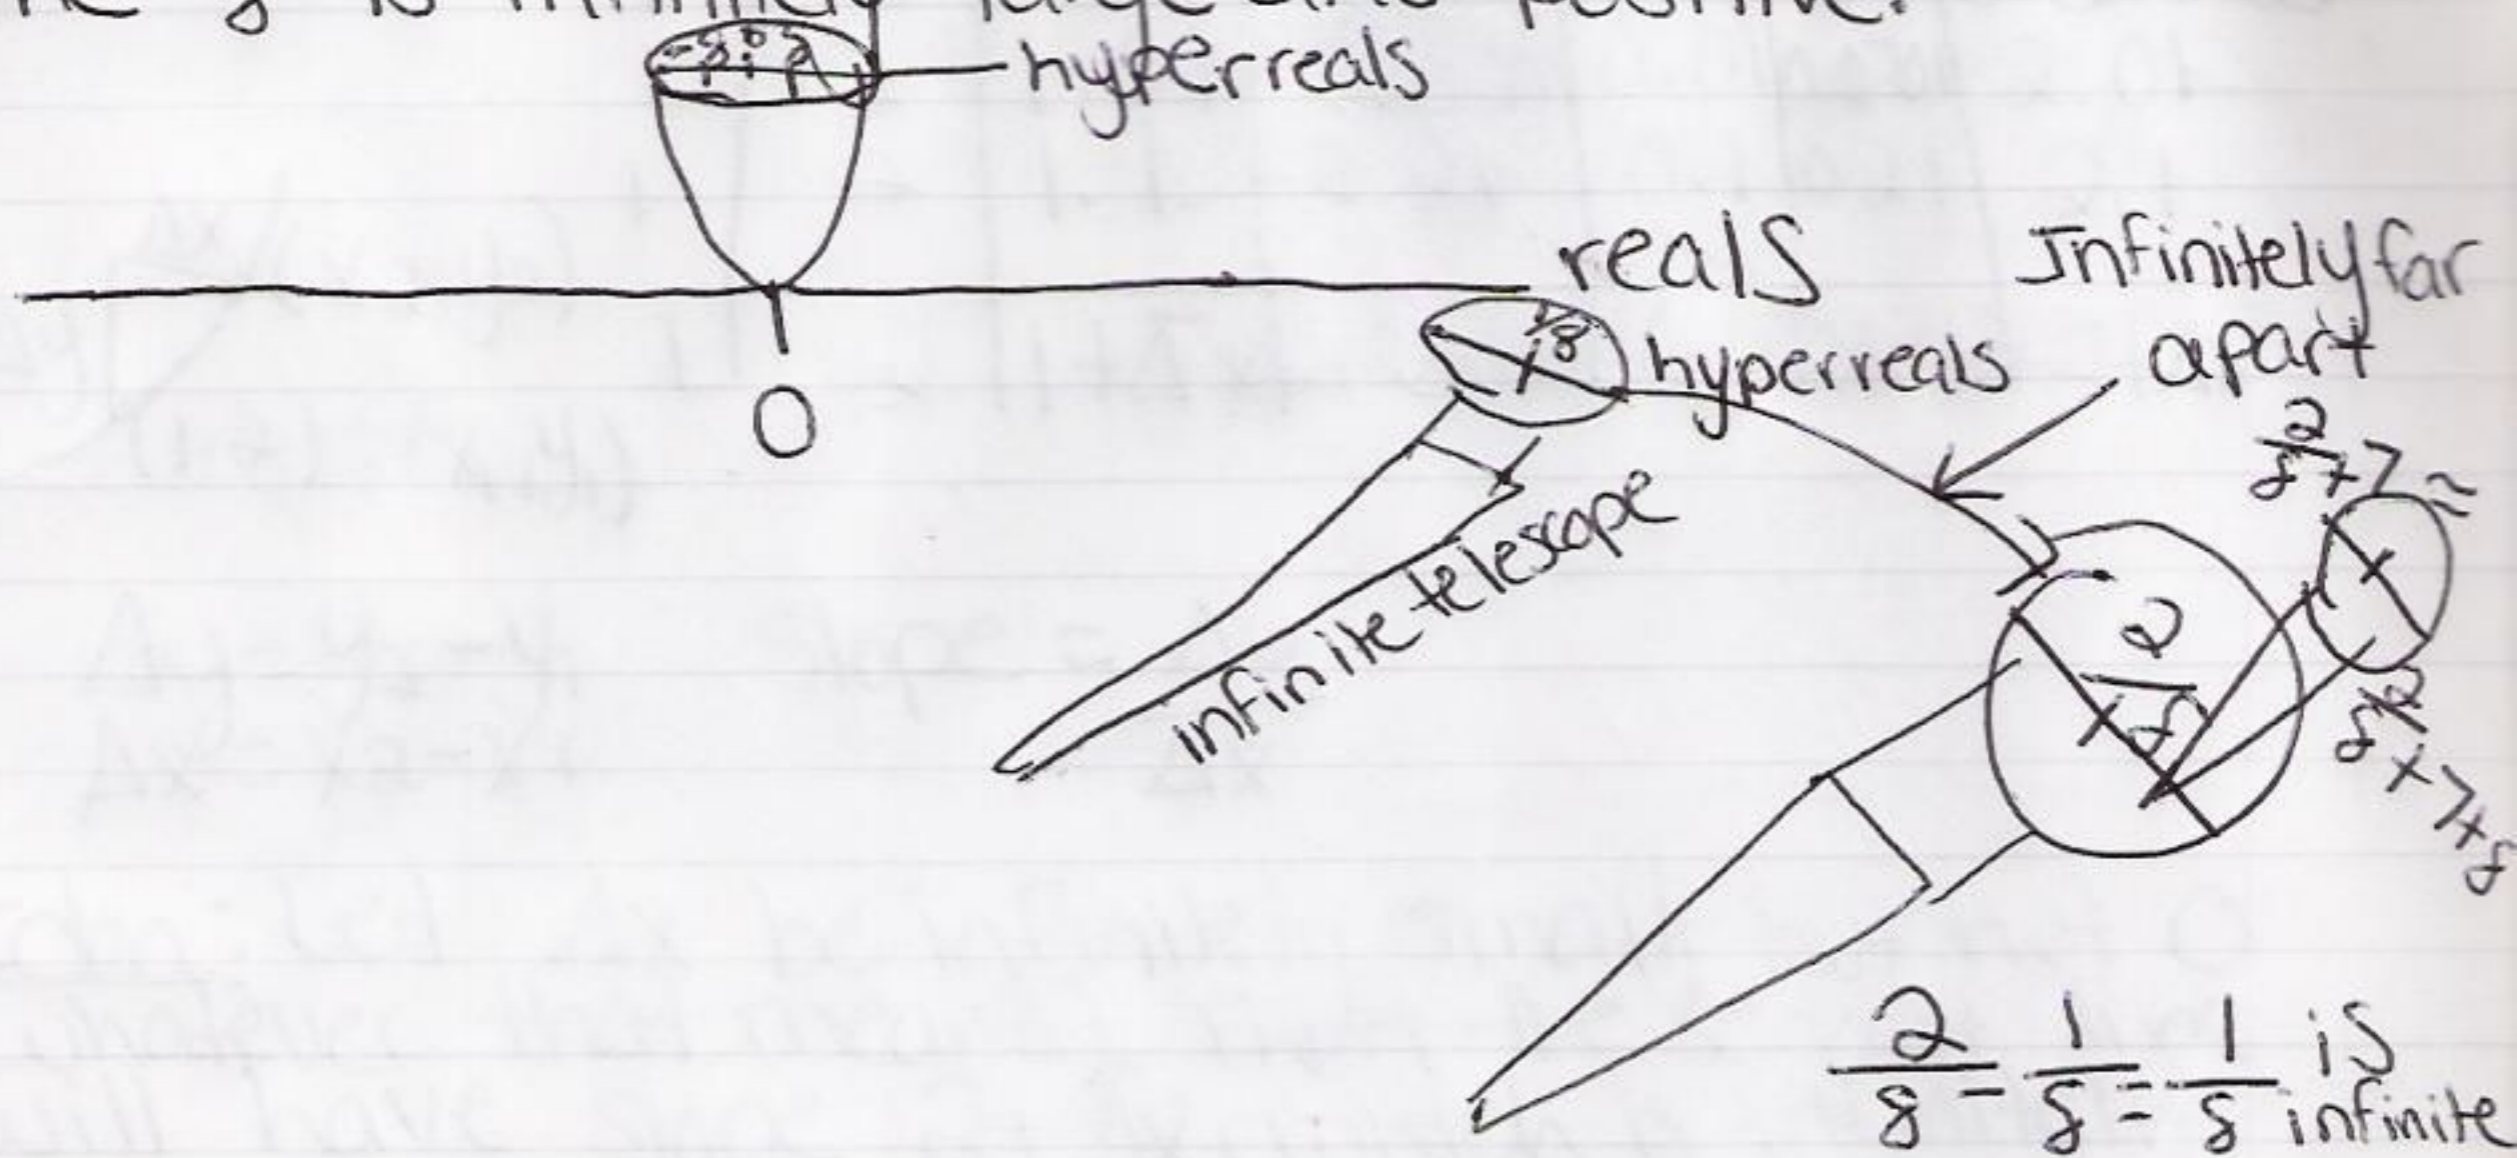 is infinitely large and positive.
-δ 0 δ
hyperreals
reals
0
1/δ
hyperreals
Infinitely far
apart
infinite telescope
2/δ
2/δ+7 ≈
2/δ+7+δ
2/δ - 1/δ = 1/δ is
infinite